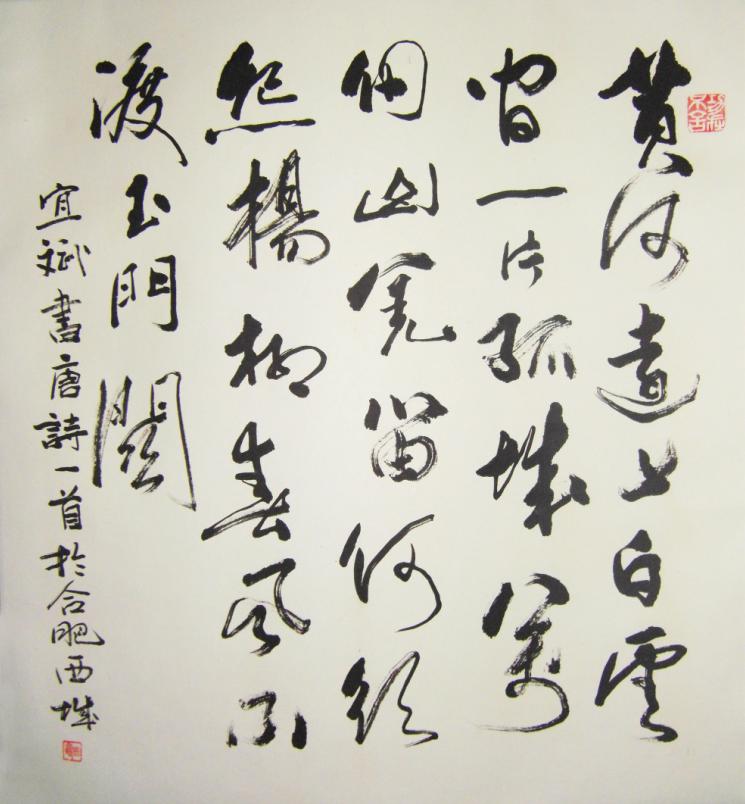 黄河遠上白雲
間一片孤城萬
仞山羌笛何須
怨楊柳春風不
渡玉門關
宜斌書唐詩一首於合肥西城